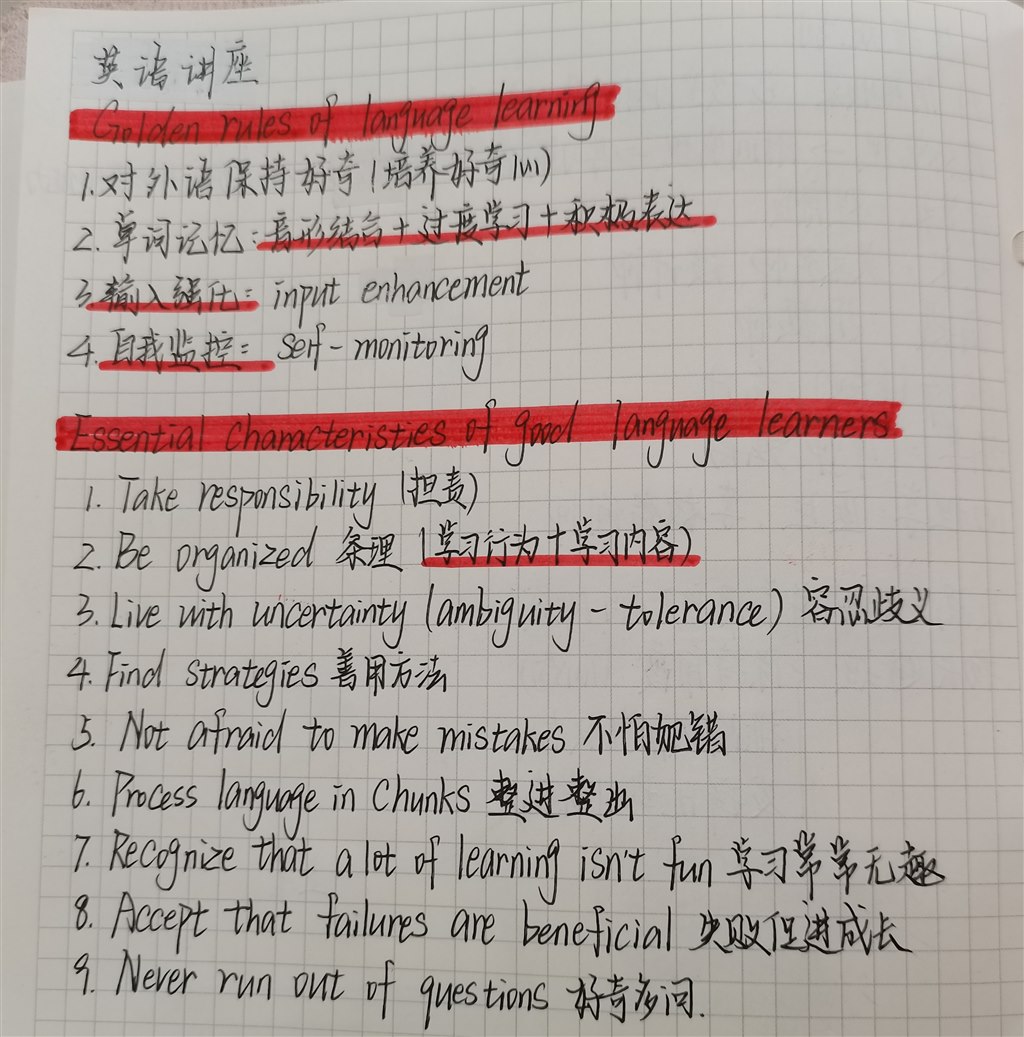 英语讲座
Golden rules of language learning
1.对外语保持好奇(培养好奇心)
2.单词记忆:音形结合+过度学习+积极表达
3.输入强化:input enhancement
4.自我监控:Self-monitoring
Essential characteristies of good language learners
1. Take responsibility (担责)
2. Be organized 条理 (学习行为+学习内容)
3. Live with uncertainty (ambiguity-tolerance) 容忍歧义
4. Find strategies 善用方法
5. Not afraid to make mistakes 不怕犯错
6. Process language in Chunks 整进整出
7. Recognize that a lot of learning isn't fun 学习常常无趣
8. Accept that failures are beneficial 失败促进成长
9. Never run out of questions 好奇多问.